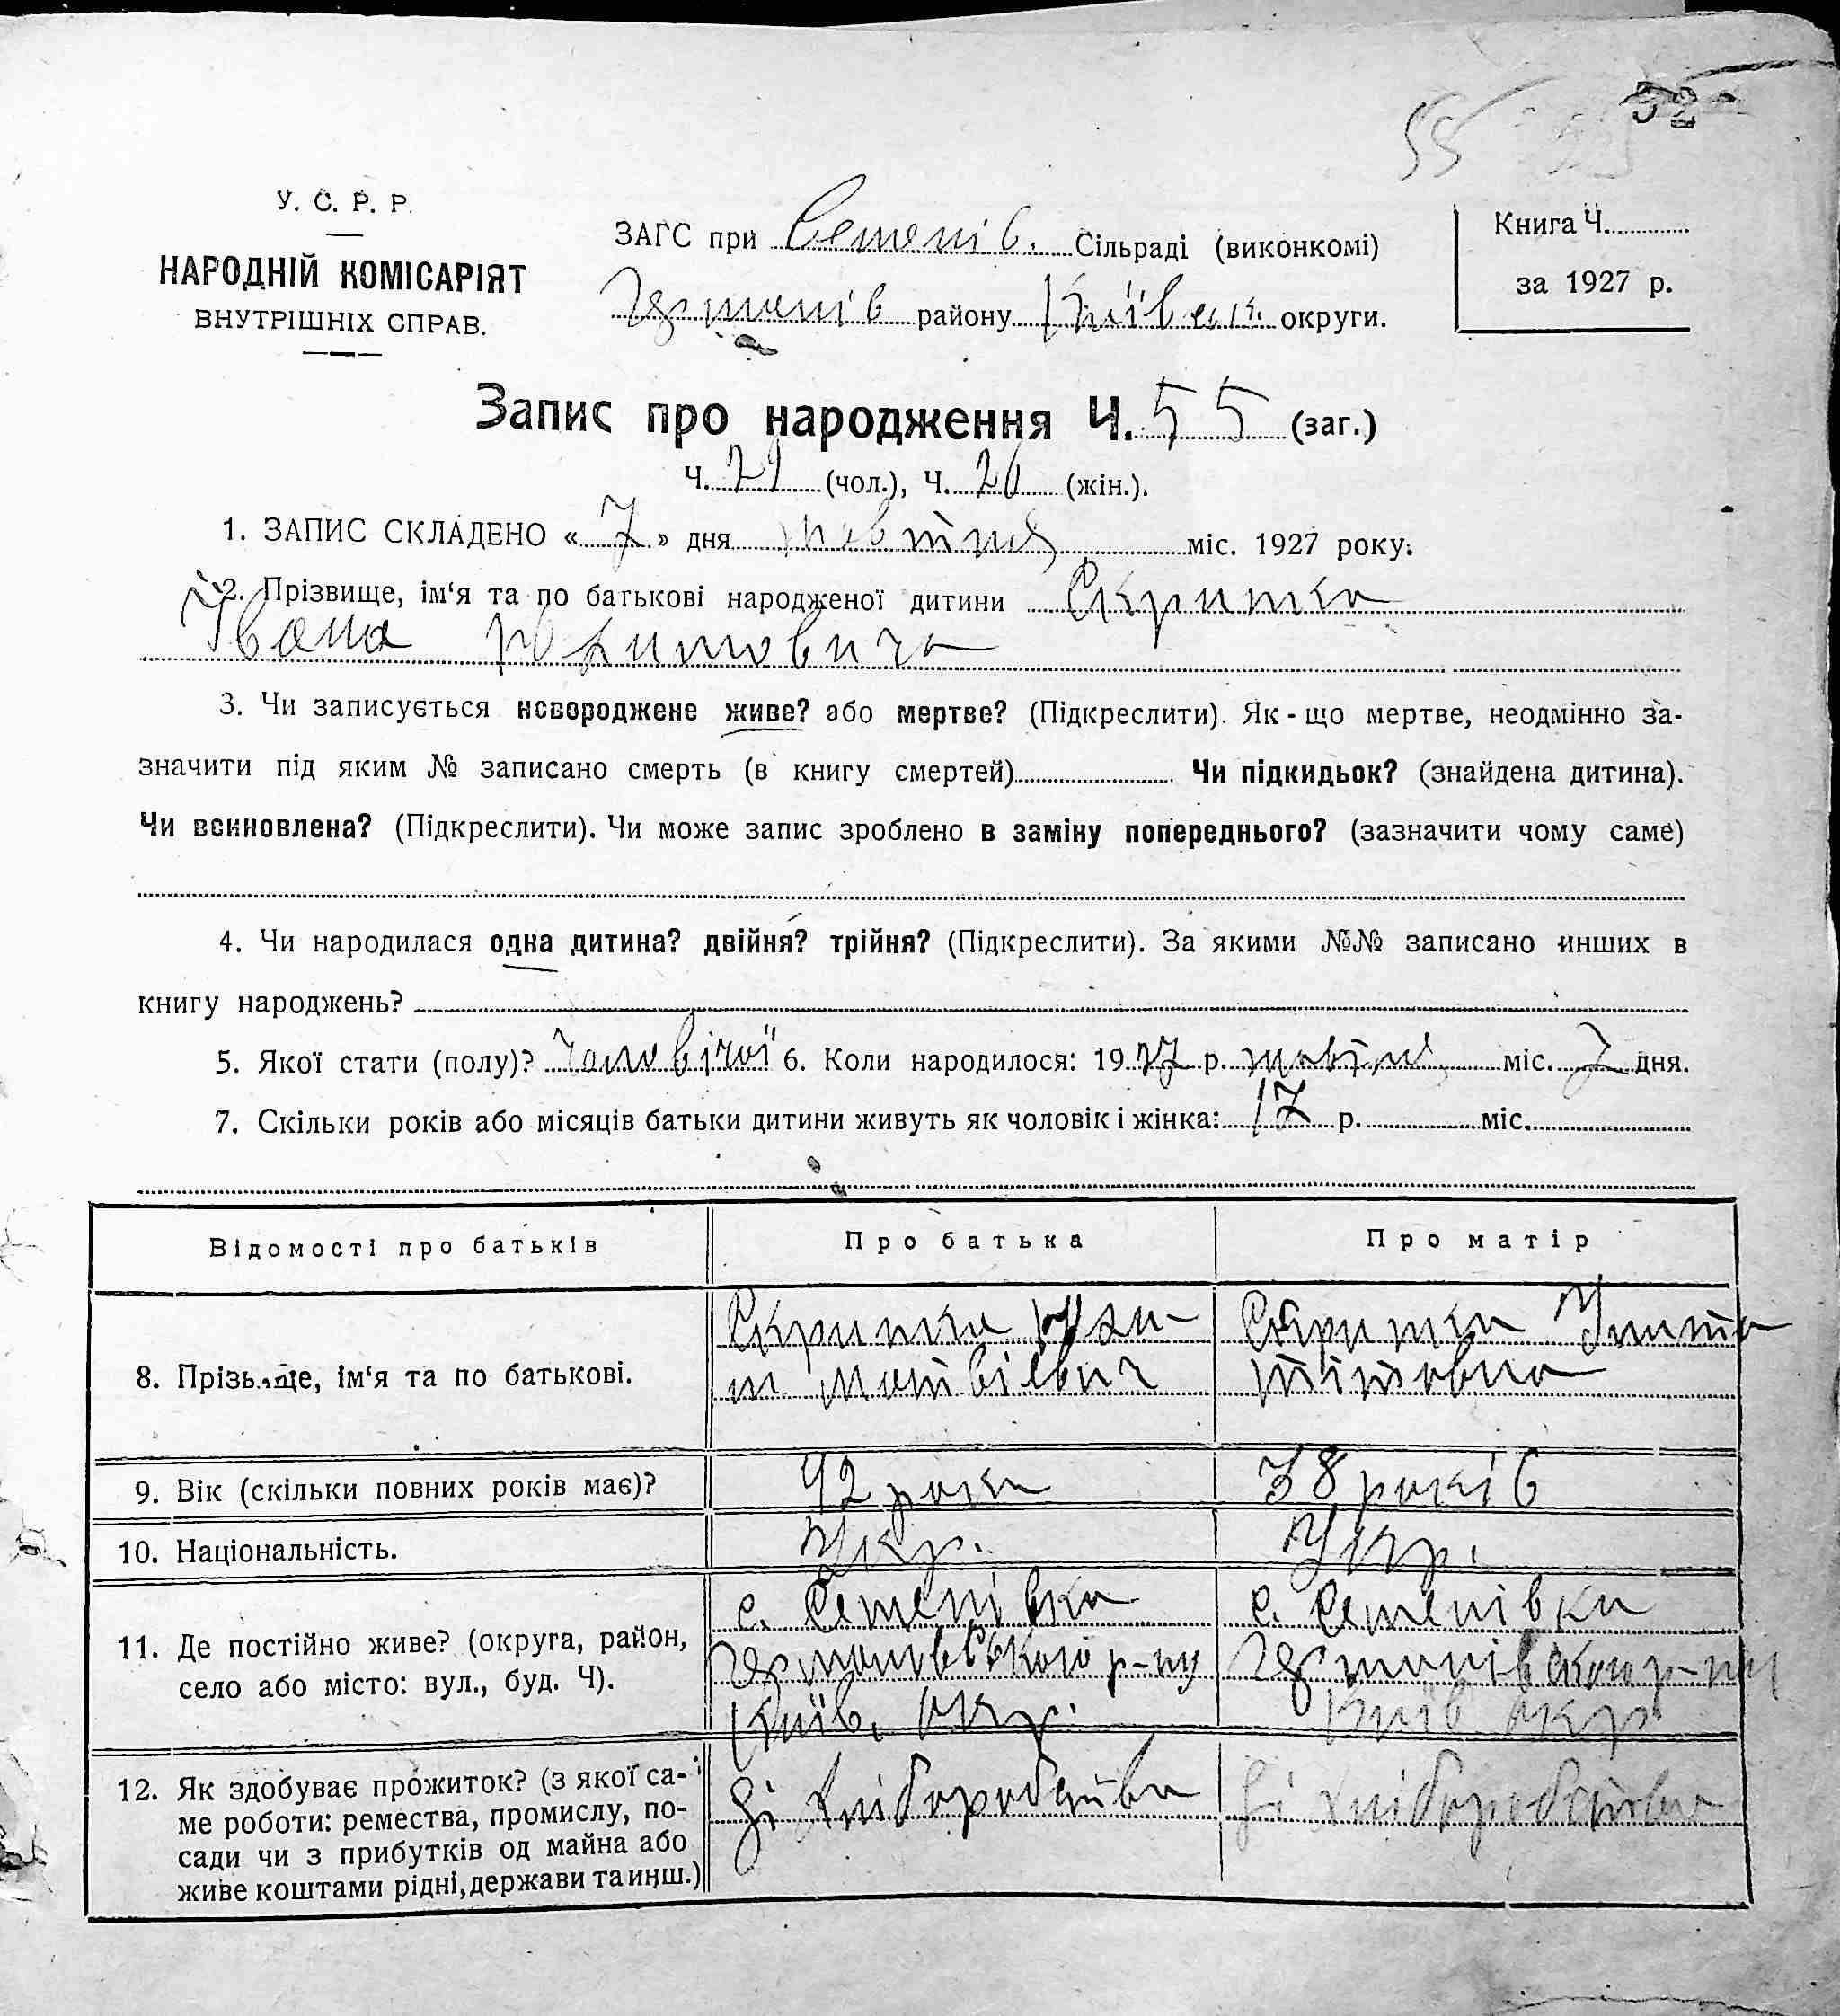 52
55
У. С. Р. Р.
НАРОДНІЙ КОМІСАРІЯТ
ВНУТРІШНІХ СПРАВ.
ЗАГС при Семенів. Сільраді (виконкомі)
Германів району Київськ. округи.
Книга Ч.
за 1927 р.
Запис про народження Ч. 55 (заг.)
Ч. 29 (чол.), Ч. 26 (жін.).
1. ЗАПИС СКЛАДЕНО « 7 » дня жовтня міс. 1927 року.
2. Прізвище, ім'я та по батькові народженої дитини Скрипка
Івана Юхимовича
3. Чи записується новороджене живе? або мертве? (Підкреслити). Як-що мертве, неодмінно за-
значити під яким № записано смерть (в книгу смертей) Чи підкидьок? (знайдена дитина).
Чи всиновлена? (Підкреслити). Чи може запис зроблено в заміну попереднього? (зазначити чому саме)
4. Чи народилася одна дитина? двійня? трійня? (Підкреслити). За якими №№ записано инших в
книгу народжень?
5. Якої стати (полу)? Чоловічої 6. Коли народилося: 1927 р. жовтня міс. 7 дня.
7. Скільки років або місяців батьки дитини живуть як чоловік і жінка: 17 р. міс.
Відомості про батьків Про батька Про матір
8. Прізвище, ім'я та по батькові.
Скрипка Юхи-
м Матвієвич
Скрипка
Тітовна
9. Вік (скільки повних років має)? 42 роки 38 років
10. Національність. Укр. Укр.
11. Де постійно живе? (округа, район,
село або місто: вул., буд. Ч).
с. Семенівка
Германовського р-ну
Київ. окр.
с. Семенівки
Германівськ р-ну
Київ окр
12. Як здобуває прожиток? (з якої са-
ме роботи: ремества, промислу, по-
сади чи з прибутків од майна або
живе коштами рідні, держави та инш.)
Зі хліборобства
Зі хліборобства